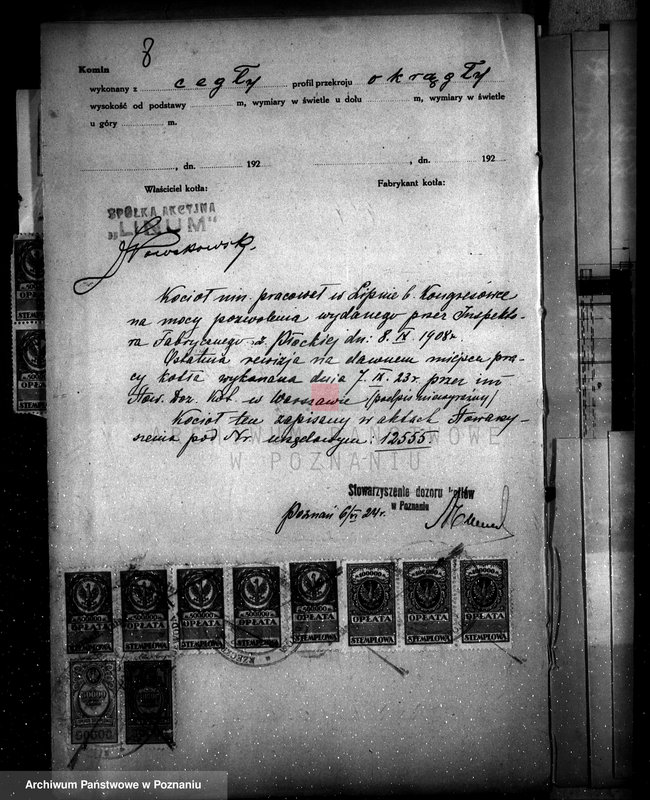 8
Komin
wykonany z cegły profil przekroju okrągły
wysokość od podstawy m, wymiary w świetle u dołu m, wymiary w świetle
u góry m.
, dn. 192 , dn. 192
Właściciel kotła: Fabrykant kotła:
SPÓŁKA AKCYJNA
„LINUM"
Nowakowski.
Kocioł nin. pracował w Lipnie b. Kongresówce
na mocy pozwolenia wydanego przez Inspekto-
ra Fabrycznego z. Płockiej dn: 8.IX 1908 r.
Ostatnia rewizja na dawnem miejscu pra-
cy kotła wykonana dnia 7.IX.23 r. przez
Stow. Doz. Kot. w Warszawie (podpis nieczytelny)
Kocioł ten zapisany w aktach Stowarzy-
szenia pod Nr. urzędowym: 12555
ARCHIWUM PAŃSTWOWE
W POZNANIU
Stowarzyszenie dozoru kotłów
w Poznaniu
Poznań 6/VI 24 r.
OPŁATA OPŁATA OPŁATA OPŁATA OPŁATA OPŁATA OPŁATA OPŁATA
STEMPLOWA STEMPLOWA STEMPLOWA STEMPLOWA STEMPLOWA STEMPLOWA STEMPLOWA STEMPLOWA
Archiwum Państwowe w Poznaniu